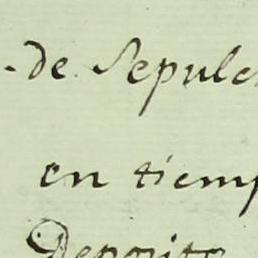 de Sepulc
en tiemp
Deposito